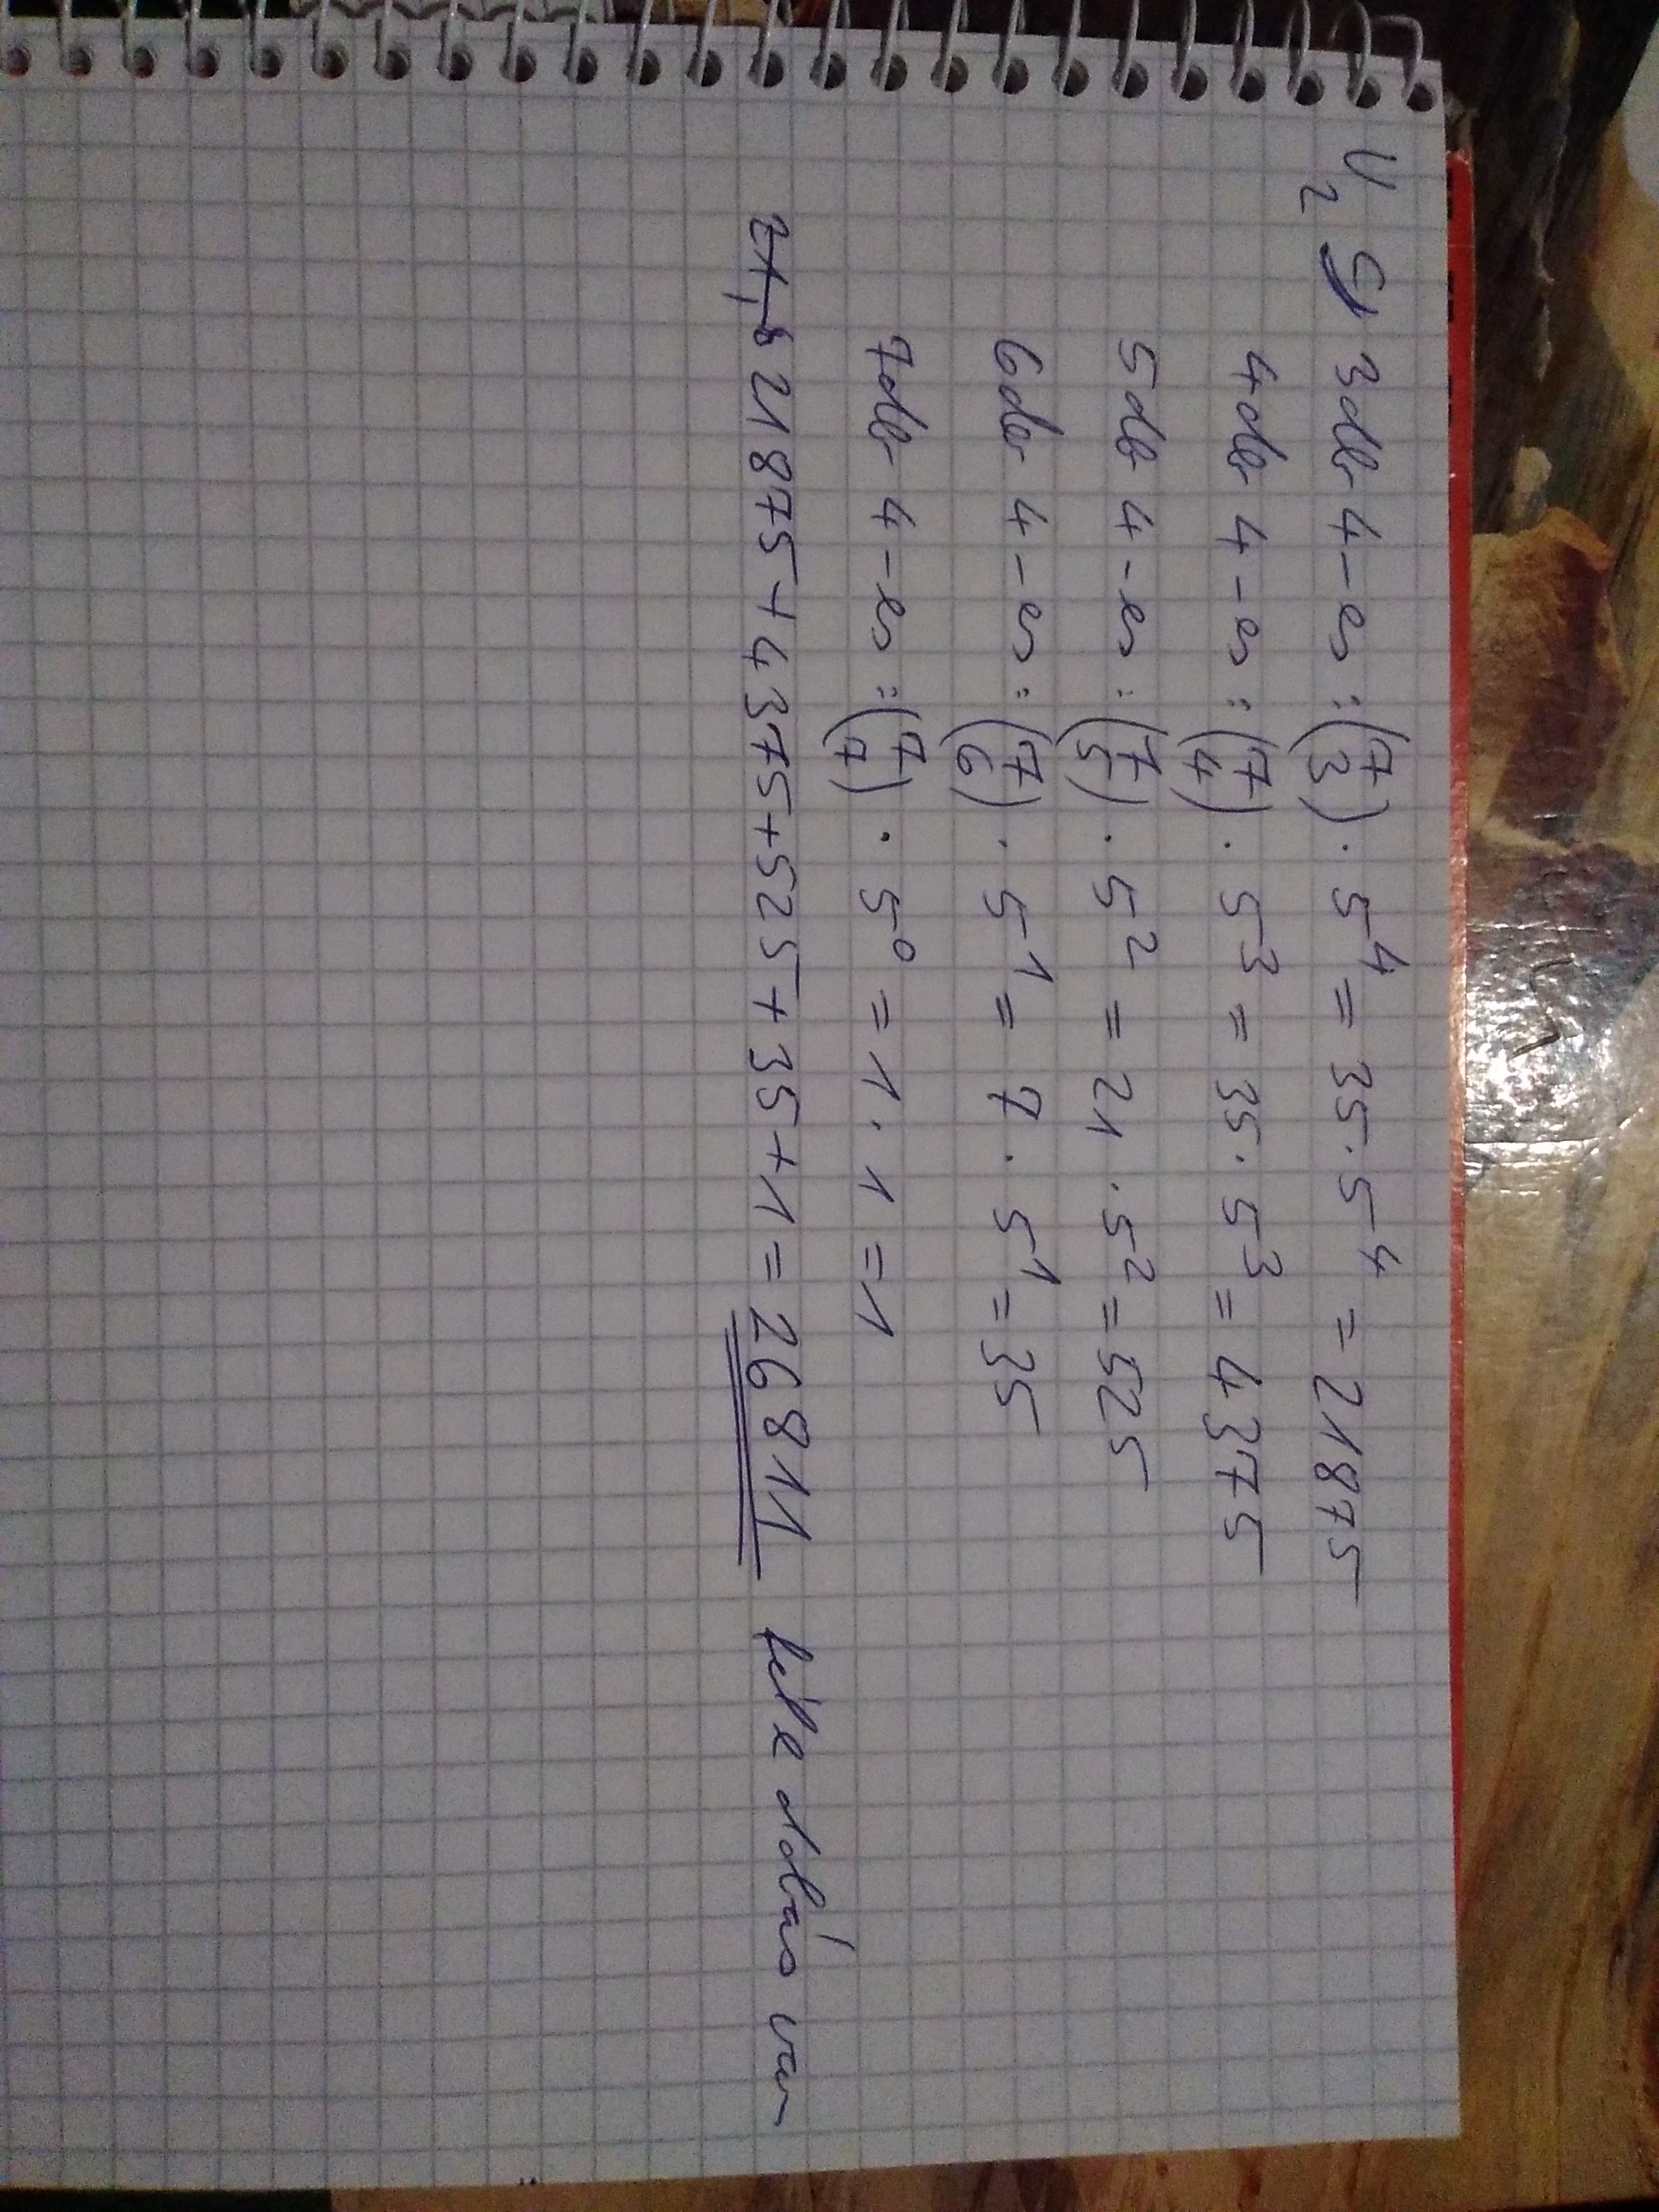 V₂ 9) 3db 4-es : (7 3) · 5⁴ = 35 · 5⁴ = 21875
4db 4-es : (7 4) · 5³ = 35 · 5³ = 4375
5db 4-es : (7 5) · 5² = 21 · 5² = 525
6db 4-es : (7 6) · 5¹ = 7 · 5¹ = 35
7db 4-es : (7 7) · 5⁰ = 1 · 1 = 1
21875 + 4375 + 525 + 35 + 1 = 26811 féle dobás van